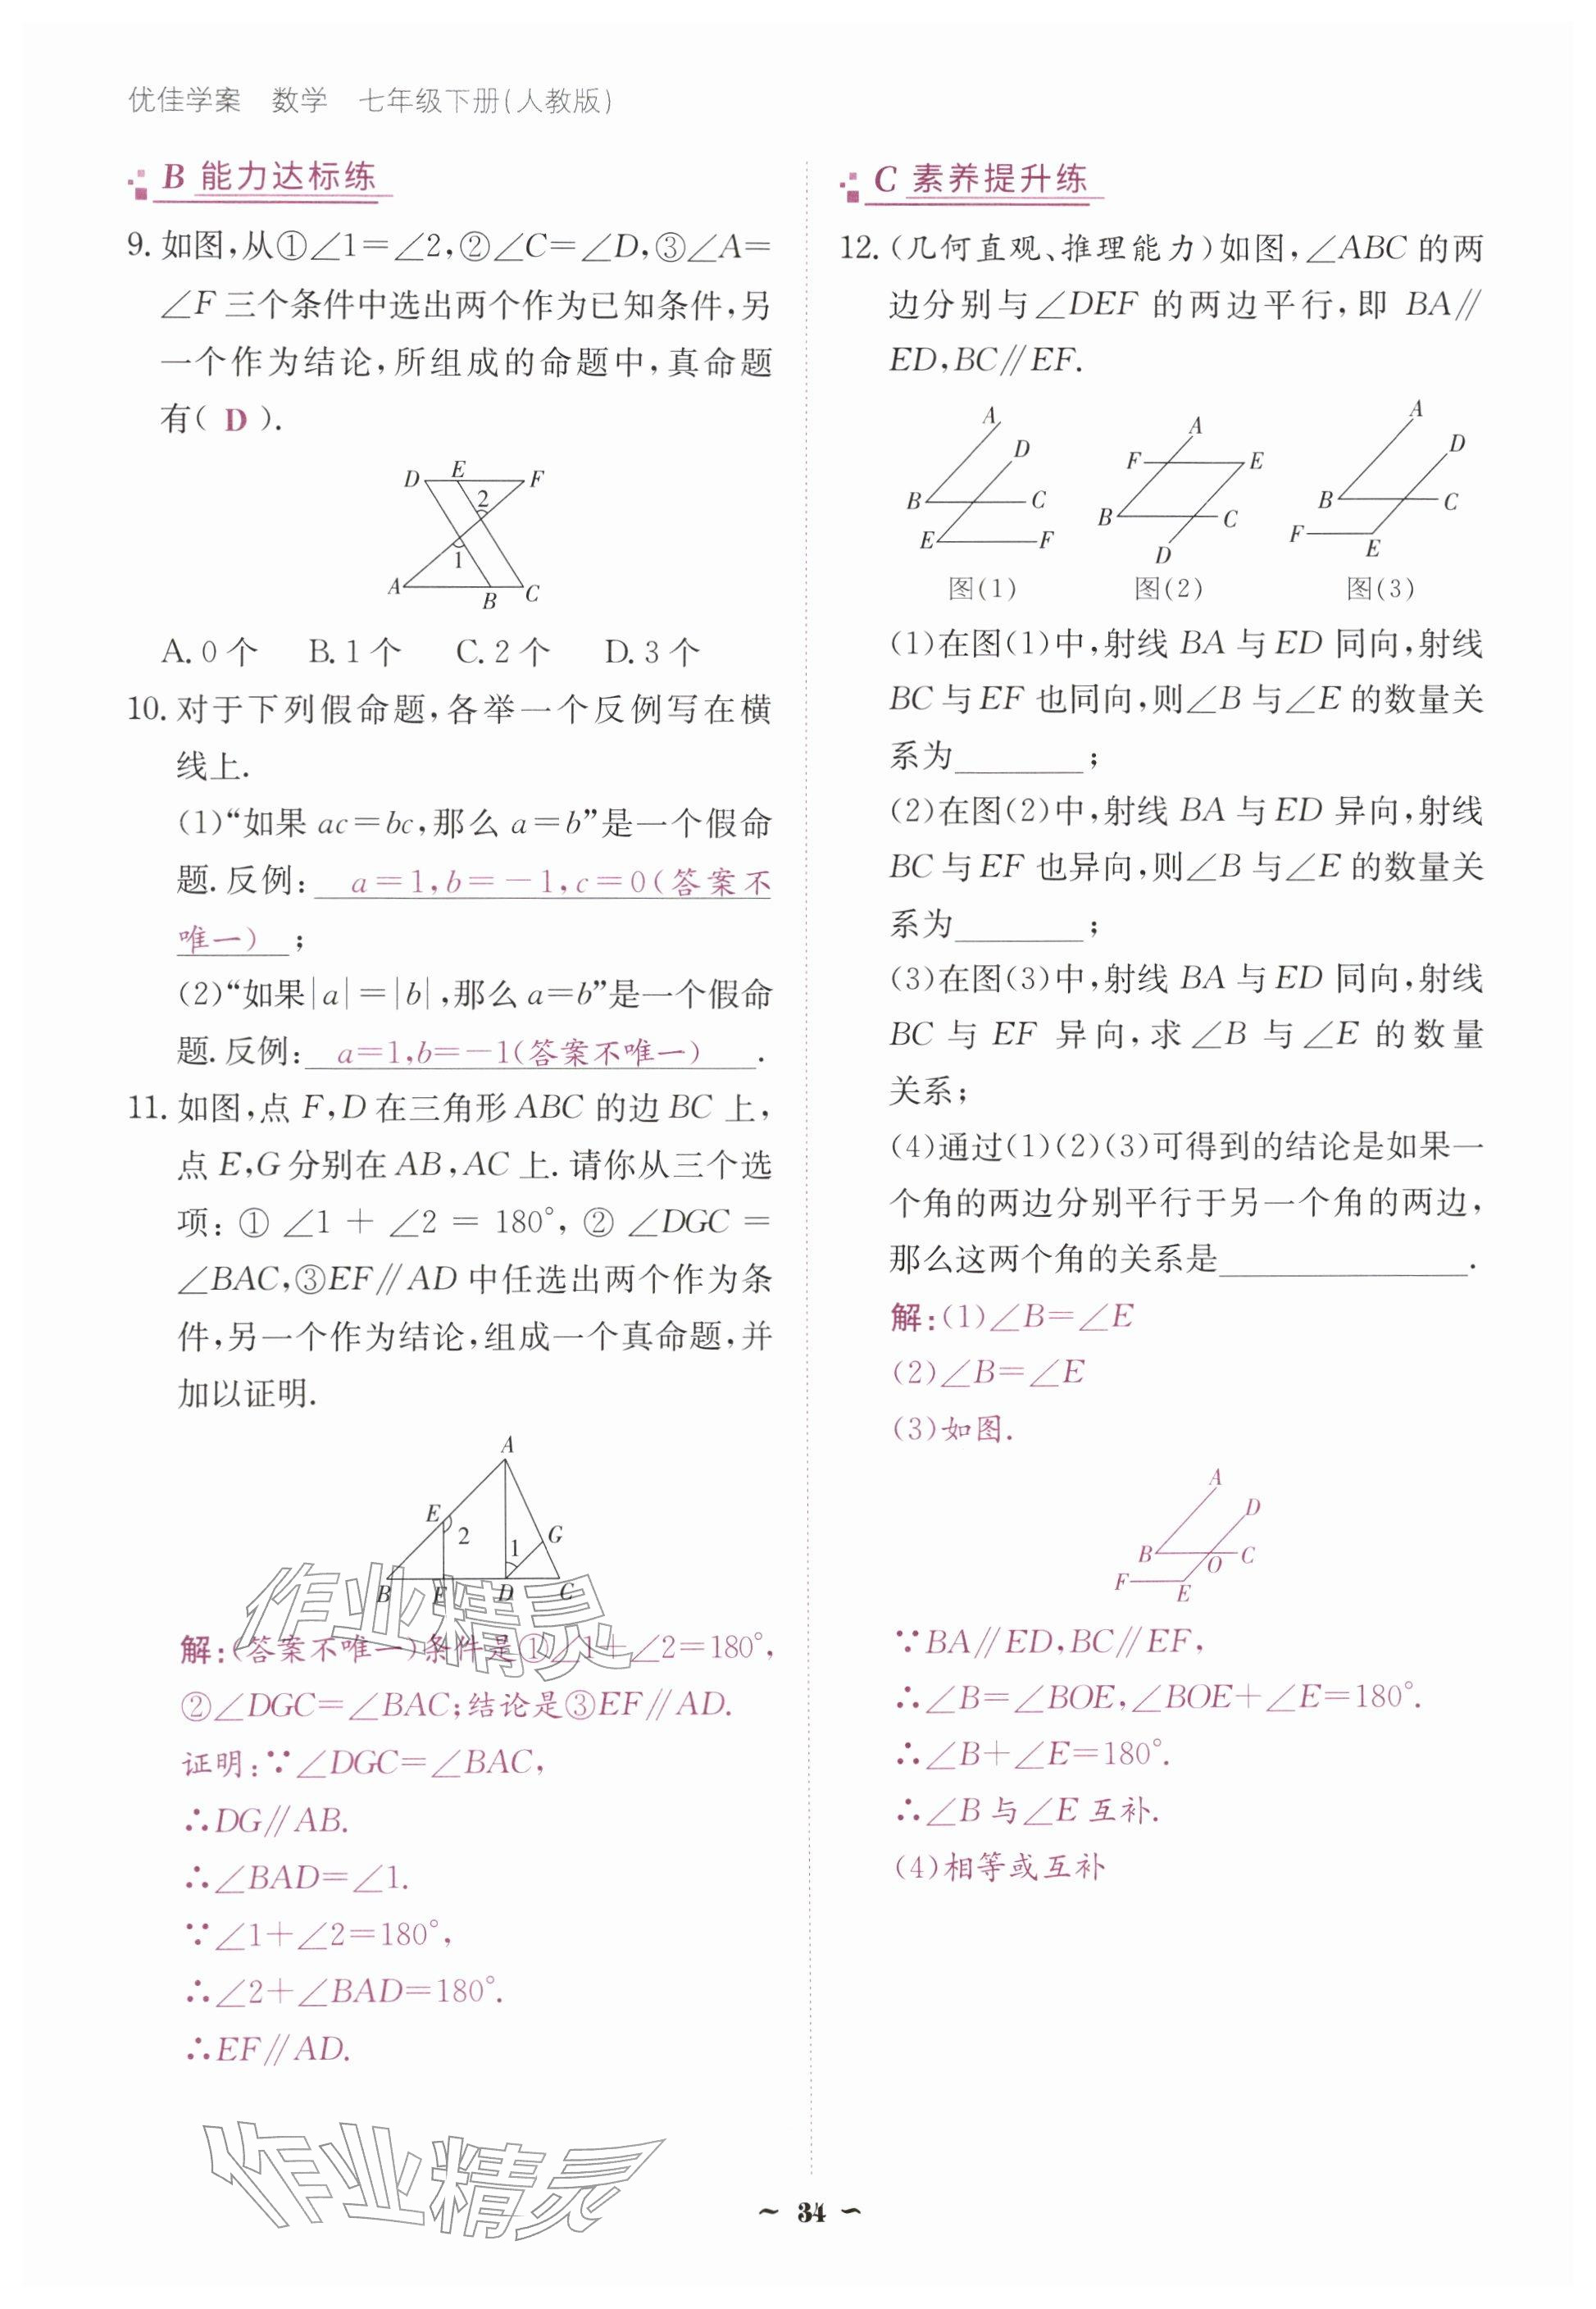 优佳学案 数学 七年级下册(人教版)
B 能力达标练
9. 如图,从①∠1=∠2,②∠C=∠D,③∠A=
∠F三个条件中选出两个作为已知条件,另
一个作为结论,所组成的命题中,真命题
有( D ).
D E F
2
1
A B C
A. 0个 B. 1个 C. 2个 D. 3个
10. 对于下列假命题,各举一个反例写在横
线上.
(1)“如果ac=bc,那么a=b”是一个假命
题.反例: a=1,b=-1,c=0(答案不
唯一) ;
(2)“如果|a|=|b|,那么a=b”是一个假命
题.反例: a=1,b=-1(答案不唯一) .
11. 如图,点F,D在三角形ABC的边BC上,
点E,G分别在AB,AC上.请你从三个选
项:①∠1+∠2=180°,②∠DGC=
∠BAC,③EF∥AD中任选出两个作为条
件,另一个作为结论,组成一个真命题,并
加以证明.
A
E 2 1 G
B F D C
作业精灵
解:(答案不唯一)条件是①∠1+∠2=180°,
②∠DGC=∠BAC;结论是③EF∥AD.
证明:∵∠DGC=∠BAC,
∴DG∥AB.
∴∠BAD=∠1.
∵∠1+∠2=180°,
∴∠2+∠BAD=180°.
∴EF∥AD.
作业精灵
C 素养提升练
12. (几何直观、推理能力)如图,∠ABC的两
边分别与∠DEF的两边平行,即BA∥
ED,BC∥EF.
A D B C E F
A F E B C D
A D B C F E
图(1) 图(2) 图(3)
(1)在图(1)中,射线BA与ED同向,射线
BC与EF也同向,则∠B与∠E的数量关
系为________;
(2)在图(2)中,射线BA与ED异向,射线
BC与EF也异向,则∠B与∠E的数量关
系为________;
(3)在图(3)中,射线BA与ED同向,射线
BC与EF异向,求∠B与∠E的数量
关系;
(4)通过(1)(2)(3)可得到的结论是如果一
个角的两边分别平行于另一个角的两边,
那么这两个角的关系是________________.
解:(1)∠B=∠E
(2)∠B=∠E
(3)如图.
A
D
B O C
F E
∵BA∥ED,BC∥EF,
∴∠B=∠BOE,∠BOE+∠E=180°.
∴∠B+∠E=180°.
∴∠B与∠E互补.
(4)相等或互补
~ 34 ~